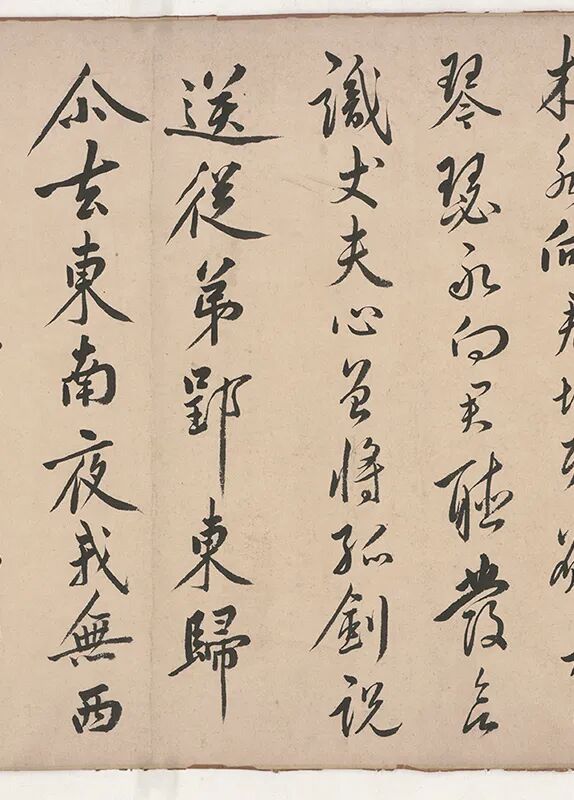 琴瑟永向君聽發言
識丈夫心曾將孤劍說
送從弟郢東歸
尒去東南夜我無西